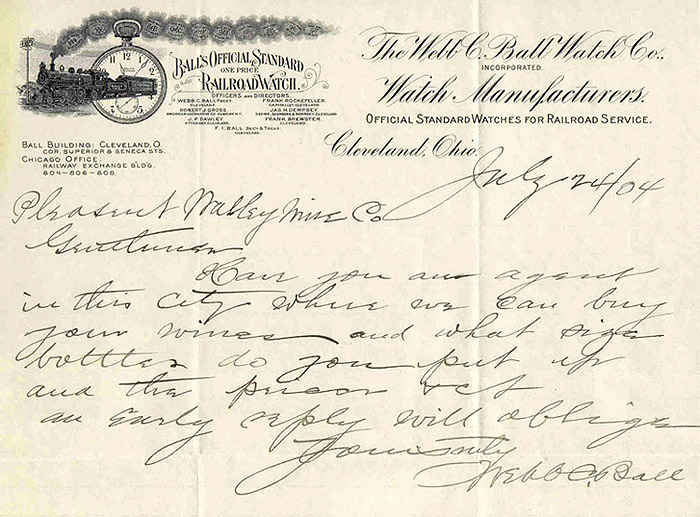 BALL'S OFFICIAL STANDARD
ONE PRICE
RAILROAD WATCH.
OFFICERS AND DIRECTORS.
WEBB C. BALL PREST.
CLEVELAND.
ROBERT J. GROSS
J. P. DAWLEY
ATTORNEY CLEVELAND.
FRANK ROCKEFELLER.
CAPITALIST CLEVELAND
JAS. H. DEMPSEY.
FRANK BREWSTER.
CLEVELAND.
F. I. BALL SECY & TREAS.
CLEVELAND.
The Webb C. Ball Watch Co.,
INCORPORATED.
Watch Manufacturers.
OFFICIAL STANDARD WATCHES FOR RAILROAD SERVICE.
BALL BUILDING: CLEVELAND, O.
COR. SUPERIOR & SENECA STS.
CHICAGO OFFICE:
RAILWAY EXCHANGE B'LD'G.
804-806-808.
Cleveland, Ohio.
July 24/04
Pleasent Valley Wine Co
Gentlemen
Have you an agent
in this city where we can buy
your wines and what size
bottles do you put up
and the prices ect
an Early reply will oblige
Yours truly
Webb C. Ball